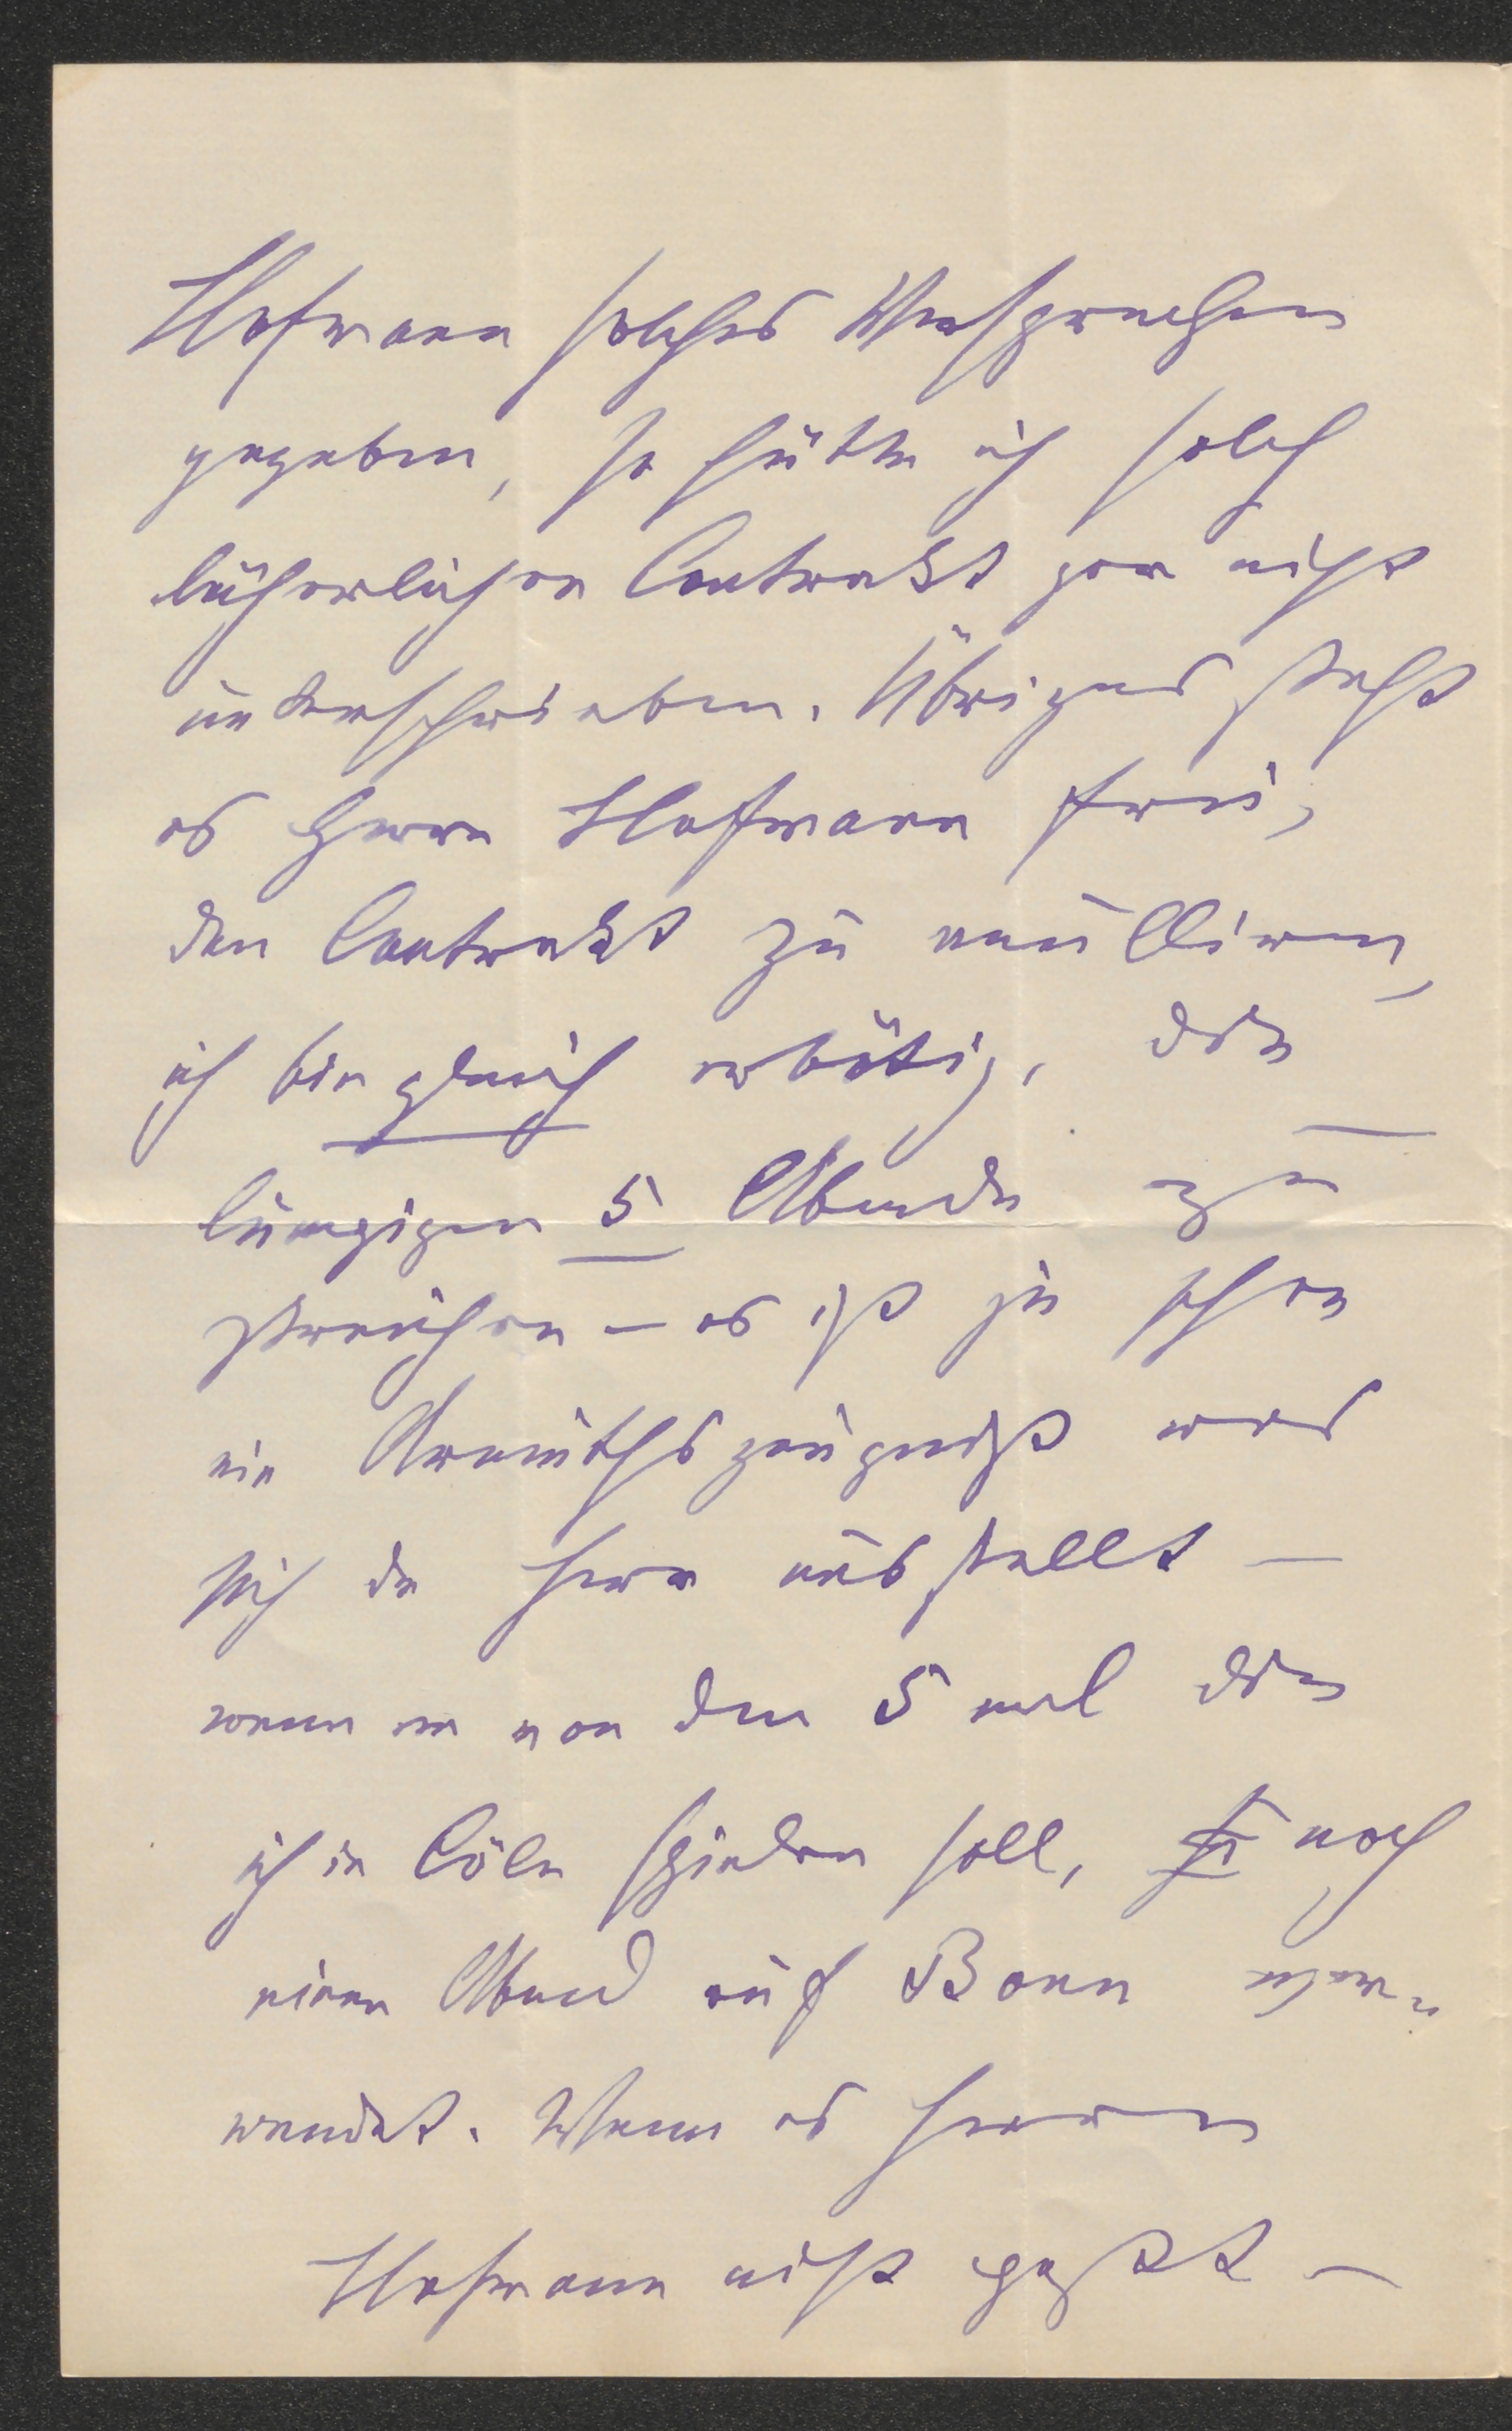 Hofmann solches Versprechen
gegeben, so hätte ich solch
lächerlichen Contrakt gar nicht
unterschrieben. Übrigens steht
es Herrn Hofmann frei,
den Contrakt zu annulliren,
ich bin gleich erbötig, die
lumpigen 5 Abende zu
streichen – es ist ja schon
ein Armuthszeugniß was
sich der Herr ausstellt –
wenn er von den 5 mal die
ich in Cöln spielen soll, noch
einen Abend auf Bonn ver-
wendet. Wenn es Herrn
Hofmann nicht paßt –